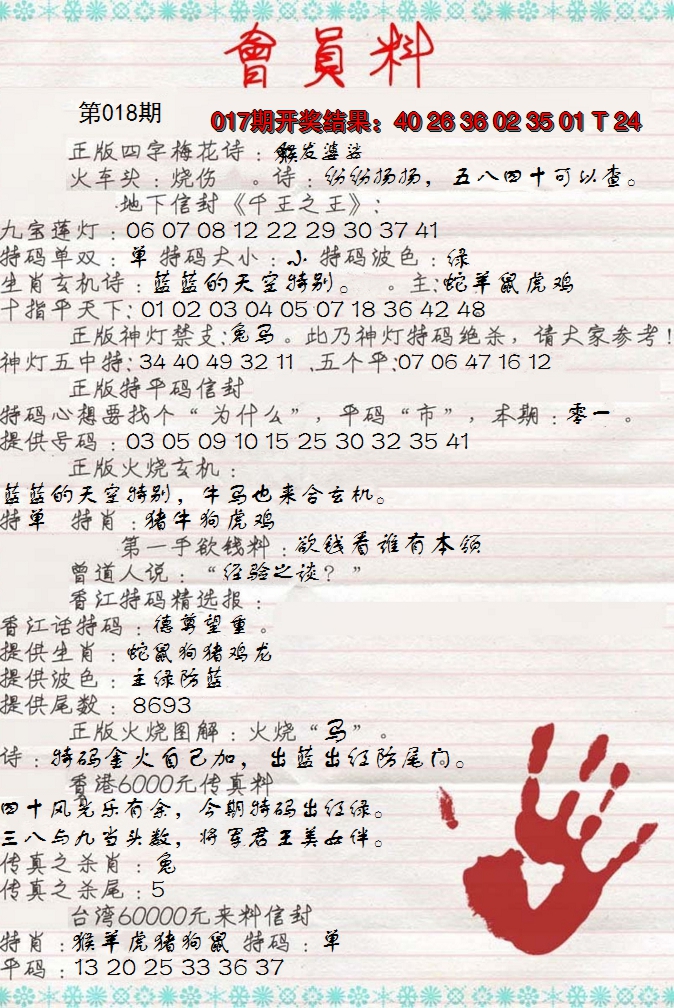 會員料
第018期
017期开奖结果：40 26 36 02 35 01 T 24
正版四字梅花诗：鬓发婆娑
火车头：烧伤 。诗：纷纷扬扬，五八四十可以查。
地下信封《千王之王》：
九宝莲灯：06 07 08 12 22 29 30 37 41
特码单双：单 特码大小：小 特码波色：绿
生肖玄机诗：蓝蓝的天空特别。 。主：蛇羊鼠虎鸡
十指平天下：01 02 03 04 05 07 18 36 42 48
正版神灯禁支：兔马。此乃神灯特码绝杀，请大家参考！
神灯五中特：34 40 49 32 11 .五个平：07 06 47 16 12
正版特平码信封
特码心想要找个“为什么”，平码“市”，本期：零一 。
提供号码：03 05 09 10 15 25 30 32 35 41
正版火烧玄机：
蓝蓝的天空特别，牛马也来合玄机。
特单 特肖：猪牛狗虎鸡
第一手欲钱料：欲钱看谁有本领
曾道人说：“经验之谈？”
香江特码精选报：
香江话特码：德尊望重。
提供生肖：蛇鼠狗猪鸡龙
提供波色：主绿防蓝
提供尾数：8693
正版火烧图解：火烧“马”。
诗：特码金火自己加，出蓝出红防尾门。
香港6000元传真料
四十风光乐有余，今期特码出红绿。
三八与九当头数，将军君王美女伴。
传真之杀肖：兔
传真之杀尾：5
台湾60000元来料信封
特肖：猴羊虎猪狗鼠 特码：单
平码：13 20 25 33 36 37